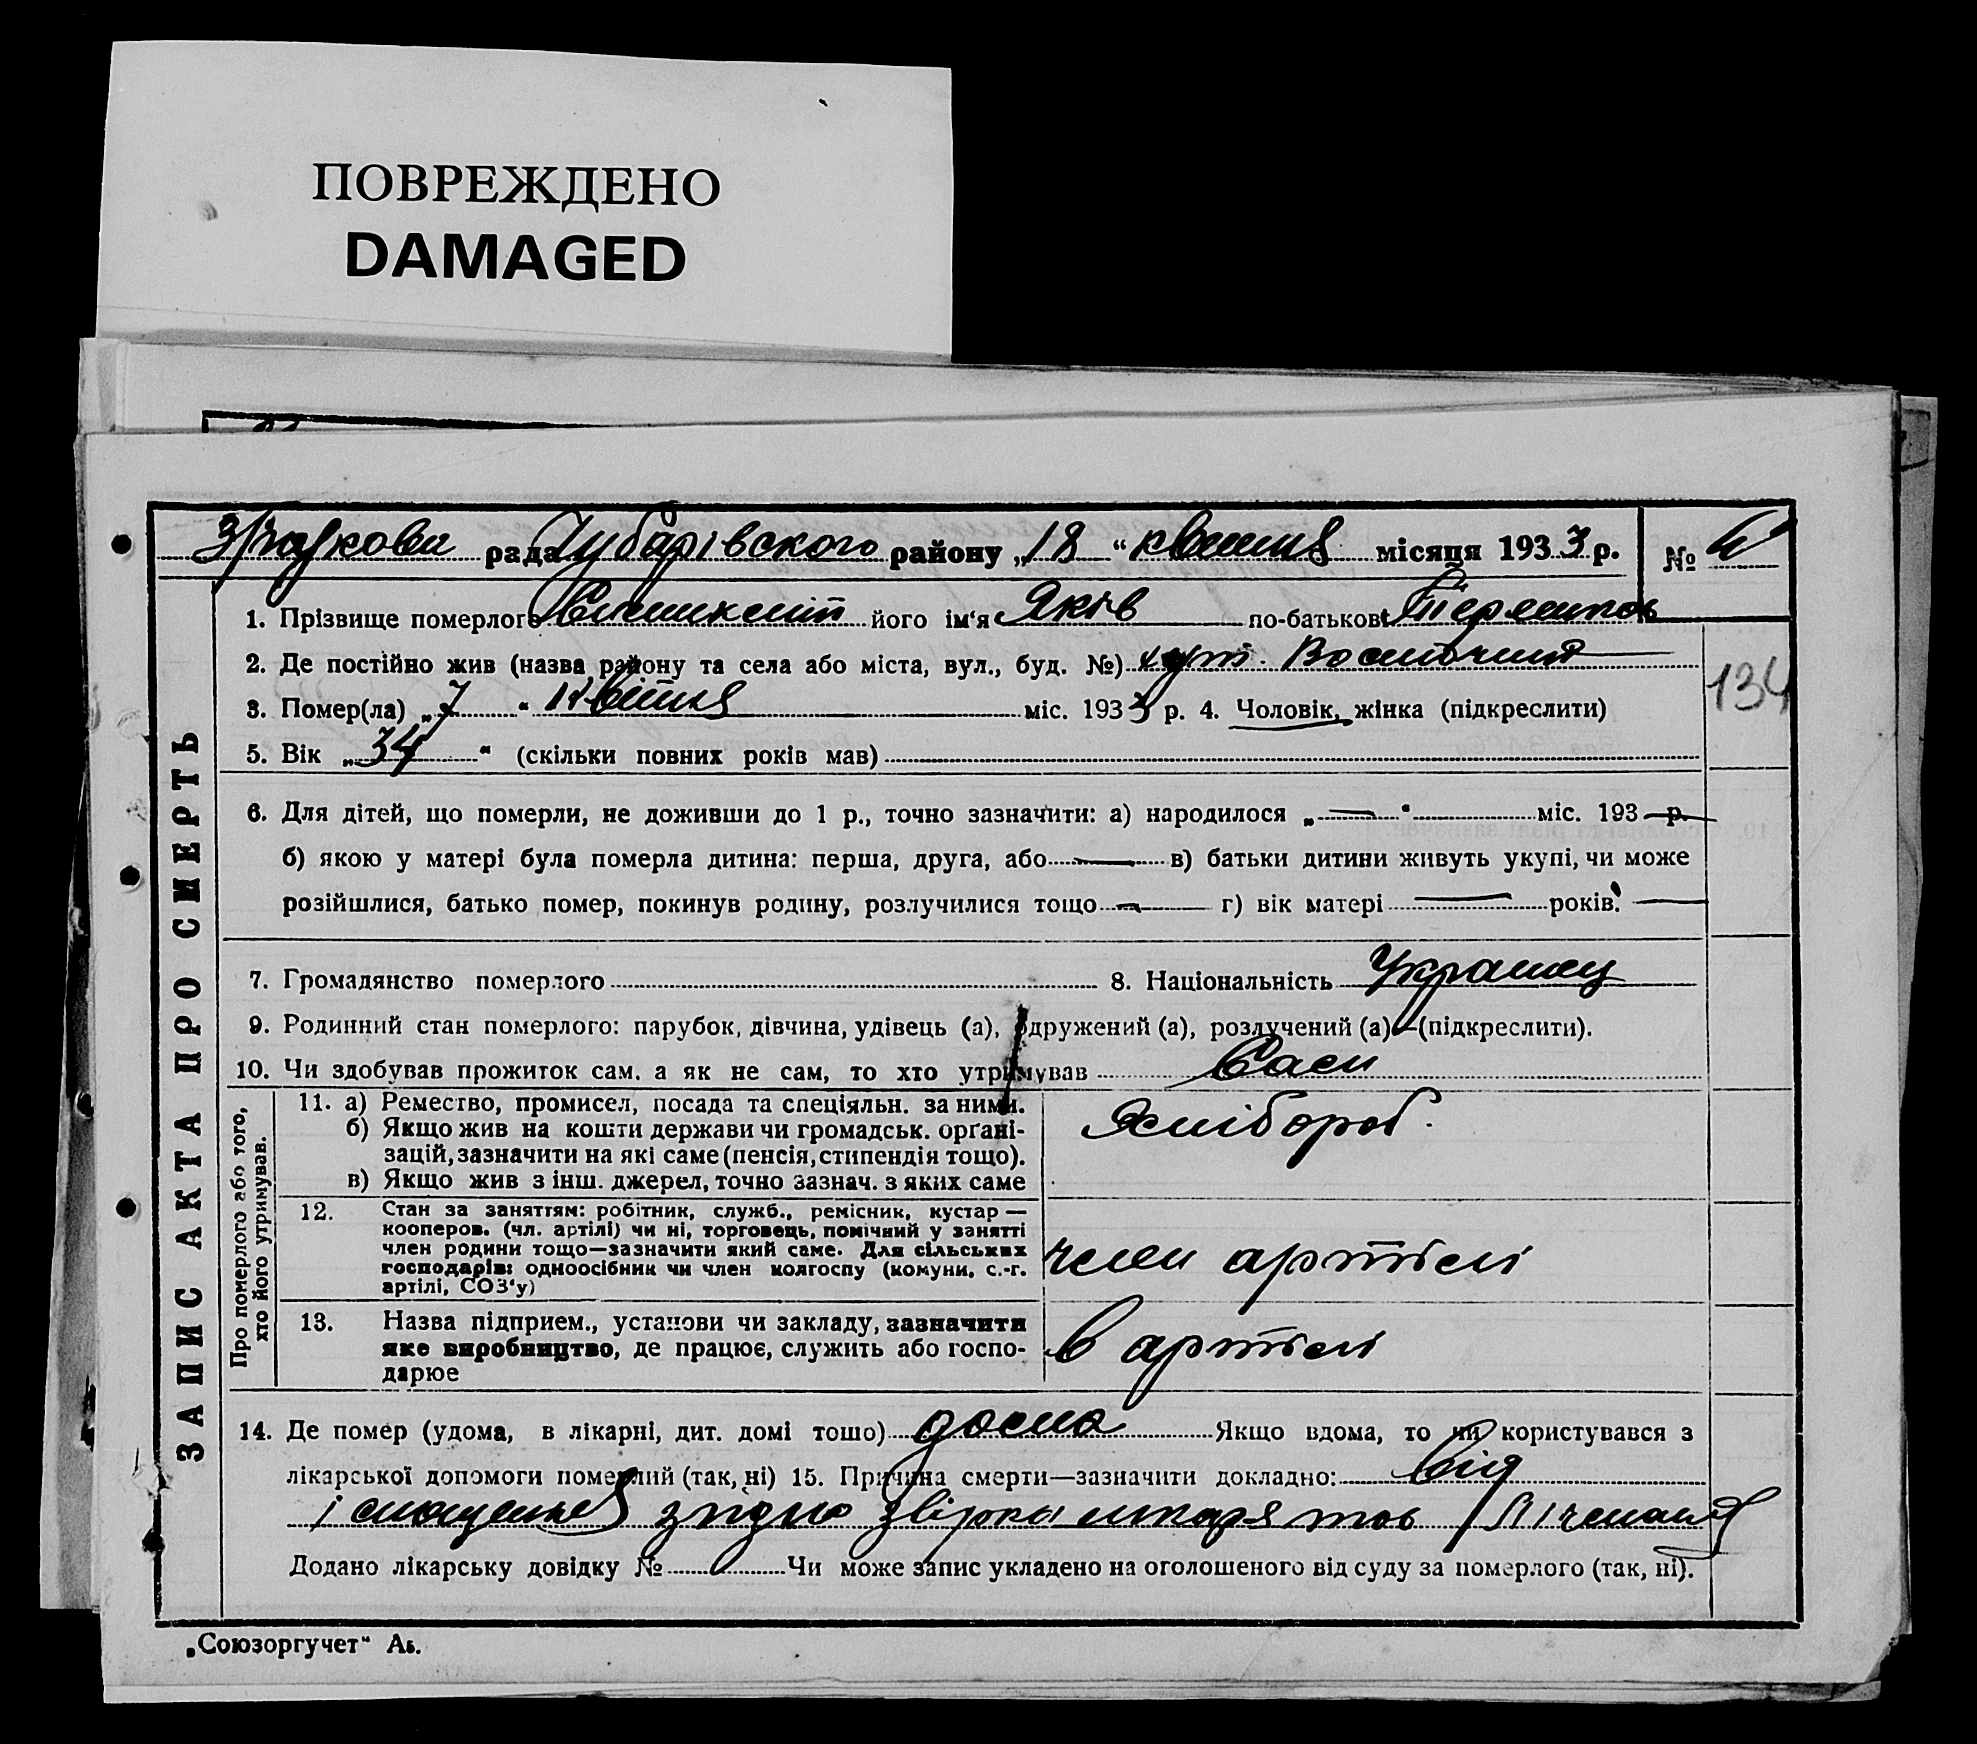 ПОВРЕЖДЕНО
DAMAGED
рада Чубарівського району „18“ квітня місяця 1933 р. №
1. Прізвище померлого його ім‘я Яків по-батькові
2. Де постійно жив (назва району та села або міста, вул., буд. №) хут.
3. Помер(ла) „7“ Квітня міс. 1933 р. 4. Чоловік, жінка (підкреслити)
134
5. Вік „34“ (скільки повних років мав)
6. Для дітей, що померли, не доживши до 1 р., точно зазначити: а) народилося „—“ міс. 193— р.
б) якою у матері була померла дитина: перша, друга, або — в) батьки дитини живуть укупі, чи може
розійшлися, батько помер, покинув родину, розлучилися тощо — г) вік матері — років. —
7. Громадянство померлого 8. Національність Украинец
9. Родинний стан померлого: парубок, дівчина, удівець (а), одружений (а), розлучений (а) — (підкреслити).
10. Чи здобував прожиток сам, а як не сам, то хто утримував Сам
ЗАПИС АКТА ПРО СМЕРТЬ
Про померлого або того, хто його утримував.
11. а) Ремество, промисел, посада та спеціяльн. за ними.
б) Якщо жив на кошти держави чи громадськ. орґані-
зацій, зазначити на які саме (пенсія, стипендія тощо).
в) Якщо жив з інш. джерел, точно зазнач. з яких саме
Хлібороб.
12. Стан за заняттям: робітник, служб., ремісник, кустар —
кооперов. (чл. артілі) чи ні, торговець, помічний у занятті
член родини тощо—зазначити який саме. Для сільських
господарів: одноосібник чи член колгоспу (комуни, с.-г.
артілі, СОЗ‘у)
член артілі
13. Назва підприєм., установи чи закладу, зазначити
яке виробництво, де працює, служить або госпо-
дарює
в артілі
14. Де помер (удома, в лікарні, дит. домі тощо) дома Якщо вдома, то чи користувався з
лікарської допомоги померлий (так, ні) 15. Причина смерти—зазначити докладно: від
згідно
Додано лікарську довідку № Чи може запис укладено на оголошеного від суду за померлого (так, ні).
„Союзоргучет“